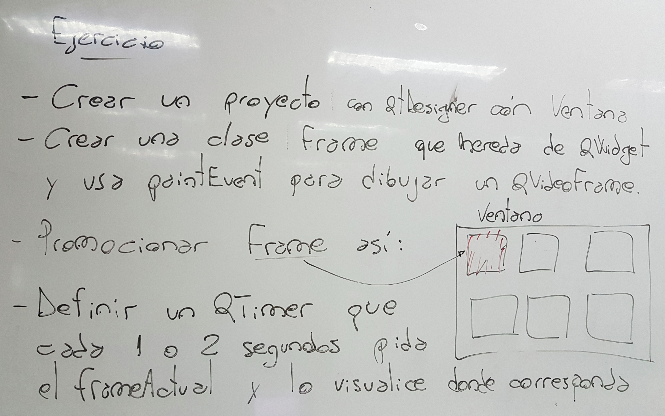 Ejercicio
- Crear un proyecto con QtDesigner con Ventana
- Crear una clase Frame que hereda de QWidget
y usa paintEvent para dibujar un QVideoFrame.
Ventana
- Promocionar Frame así:
- Definir un QTimer que
cada 1 o 2 segundos pida
el frameActual y lo visualice donde corresponda